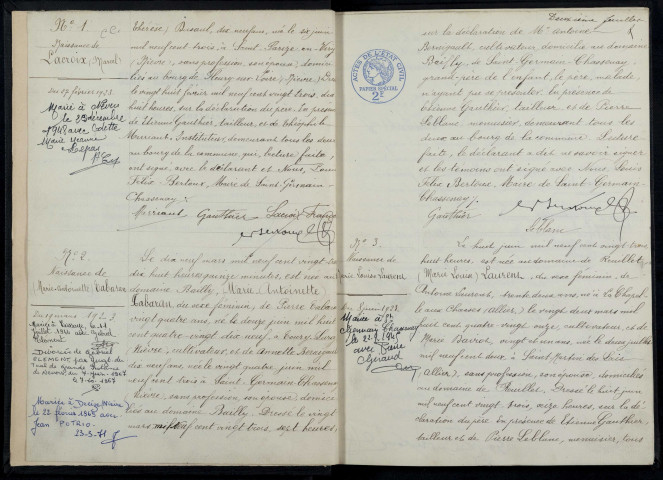 N° 1
Naissance de
Lacroix, Marcel
Du 17 février 1923
Marié à
le 30 décembre
1948 avec Colette
Marie Jeanne
Repas
née le six juin
mil neuf cent trois à Saint Parize
(Nièvre) sans profession, son épouse, domici-
liés au bourg de Fleury sur Loire (Nièvre) Dressé
le vingt huit février mil neuf cent vingt trois, dix
huit heures, sur la déclaration du père. En présence
de Etienne Gauthier, tailleur, et de Théophile
Merriaut, Instituteur, demeurant tous les deux
au bourg de la commune, qui, lecture faite,
ont signé avec le déclarant et Nous, Louis
Félix Bertoux, Maire de Saint Germain
Chassenay.
Merriaut Gauthier Lacroix
N° 2
Naissance de
Marie-Antoinette Cabaran
Du 19 mars 1923
Le dix neuf mars mil neuf cent vingt
dix huit heures quinze minutes, est née au
domaine Bailly, Marie Antoinette
Cabaran du sexe féminin, de Pierre Cabaran
vingt quatre ans, né le douze juin mil huit
cent quatre-vingt dix neuf, à
(Nièvre), cultivateur, et de Annette
dix neuf ans, née le vingt quatre juin, mil
neuf cent trois à Saint Germain Chassenay
(Nièvre), sans profession, son épouse, domici-
liés au domaine Bailly. Dressé le vingt
mars mil neuf cent vingt trois, sept heures,
Divorcée de
CLEMENT par jugt du
Trib de grande instance
de Nevers du
Mariée à
le 22 février 1968 avec
Jean POTRIO
23-3-71
Deuxième feuillet
ACTES DE L'ÉTAT CIVIL
PAPIER SPÉCIAL
2F
sur la déclaration de Mr Antoine
cultivateur, domicilié au domaine
Bailly, de Saint-Germain-Chassenay,
grand-père de l'enfant, le père, malade
n'ayant pu se présenter. En présence de
Etienne Gauthier, tailleur, et de Pierre
Leblanc, menuisier, demeurant tous les
deux au bourg de la commune. Lecture
faite, le déclarant a dit ne savoir signer
et les témoins ont signé avec Nous, Louis
Félix Bertoux, Maire de Saint-Germain-
Chassenay.
Gauthier
Leblanc
N° 3
Naissance de
Marie Louise Laurent
Du 8 juin 1923
Mariée à St
Germain Chassenay
avec
Giraud
Le huit juin mil neuf cent vingt trois
huit heures, est née au domaine de Reuillot
Marie Louise Laurent, du sexe féminin, de
Antoine Laurent, trente deux ans, né à La Chapel-
le aux Chasses (Allier), le vingt deux mars mil
huit cent quatre vingt onze, cultivateur, et de
Marie Bavrot, vingt et un ans, née le deux juillet
mil neuf cent deux, à Saint Martin des Lais
(Allier), sans profession, son épouse, domiciliés
au domaine de Reuillot. Dressé le huit juin
mil neuf cent vingt trois, seize heures, sur la dé-
claration du père. En présence de Etienne Gauthier,
tailleur et de Pierre Leblanc, menuisier, tous